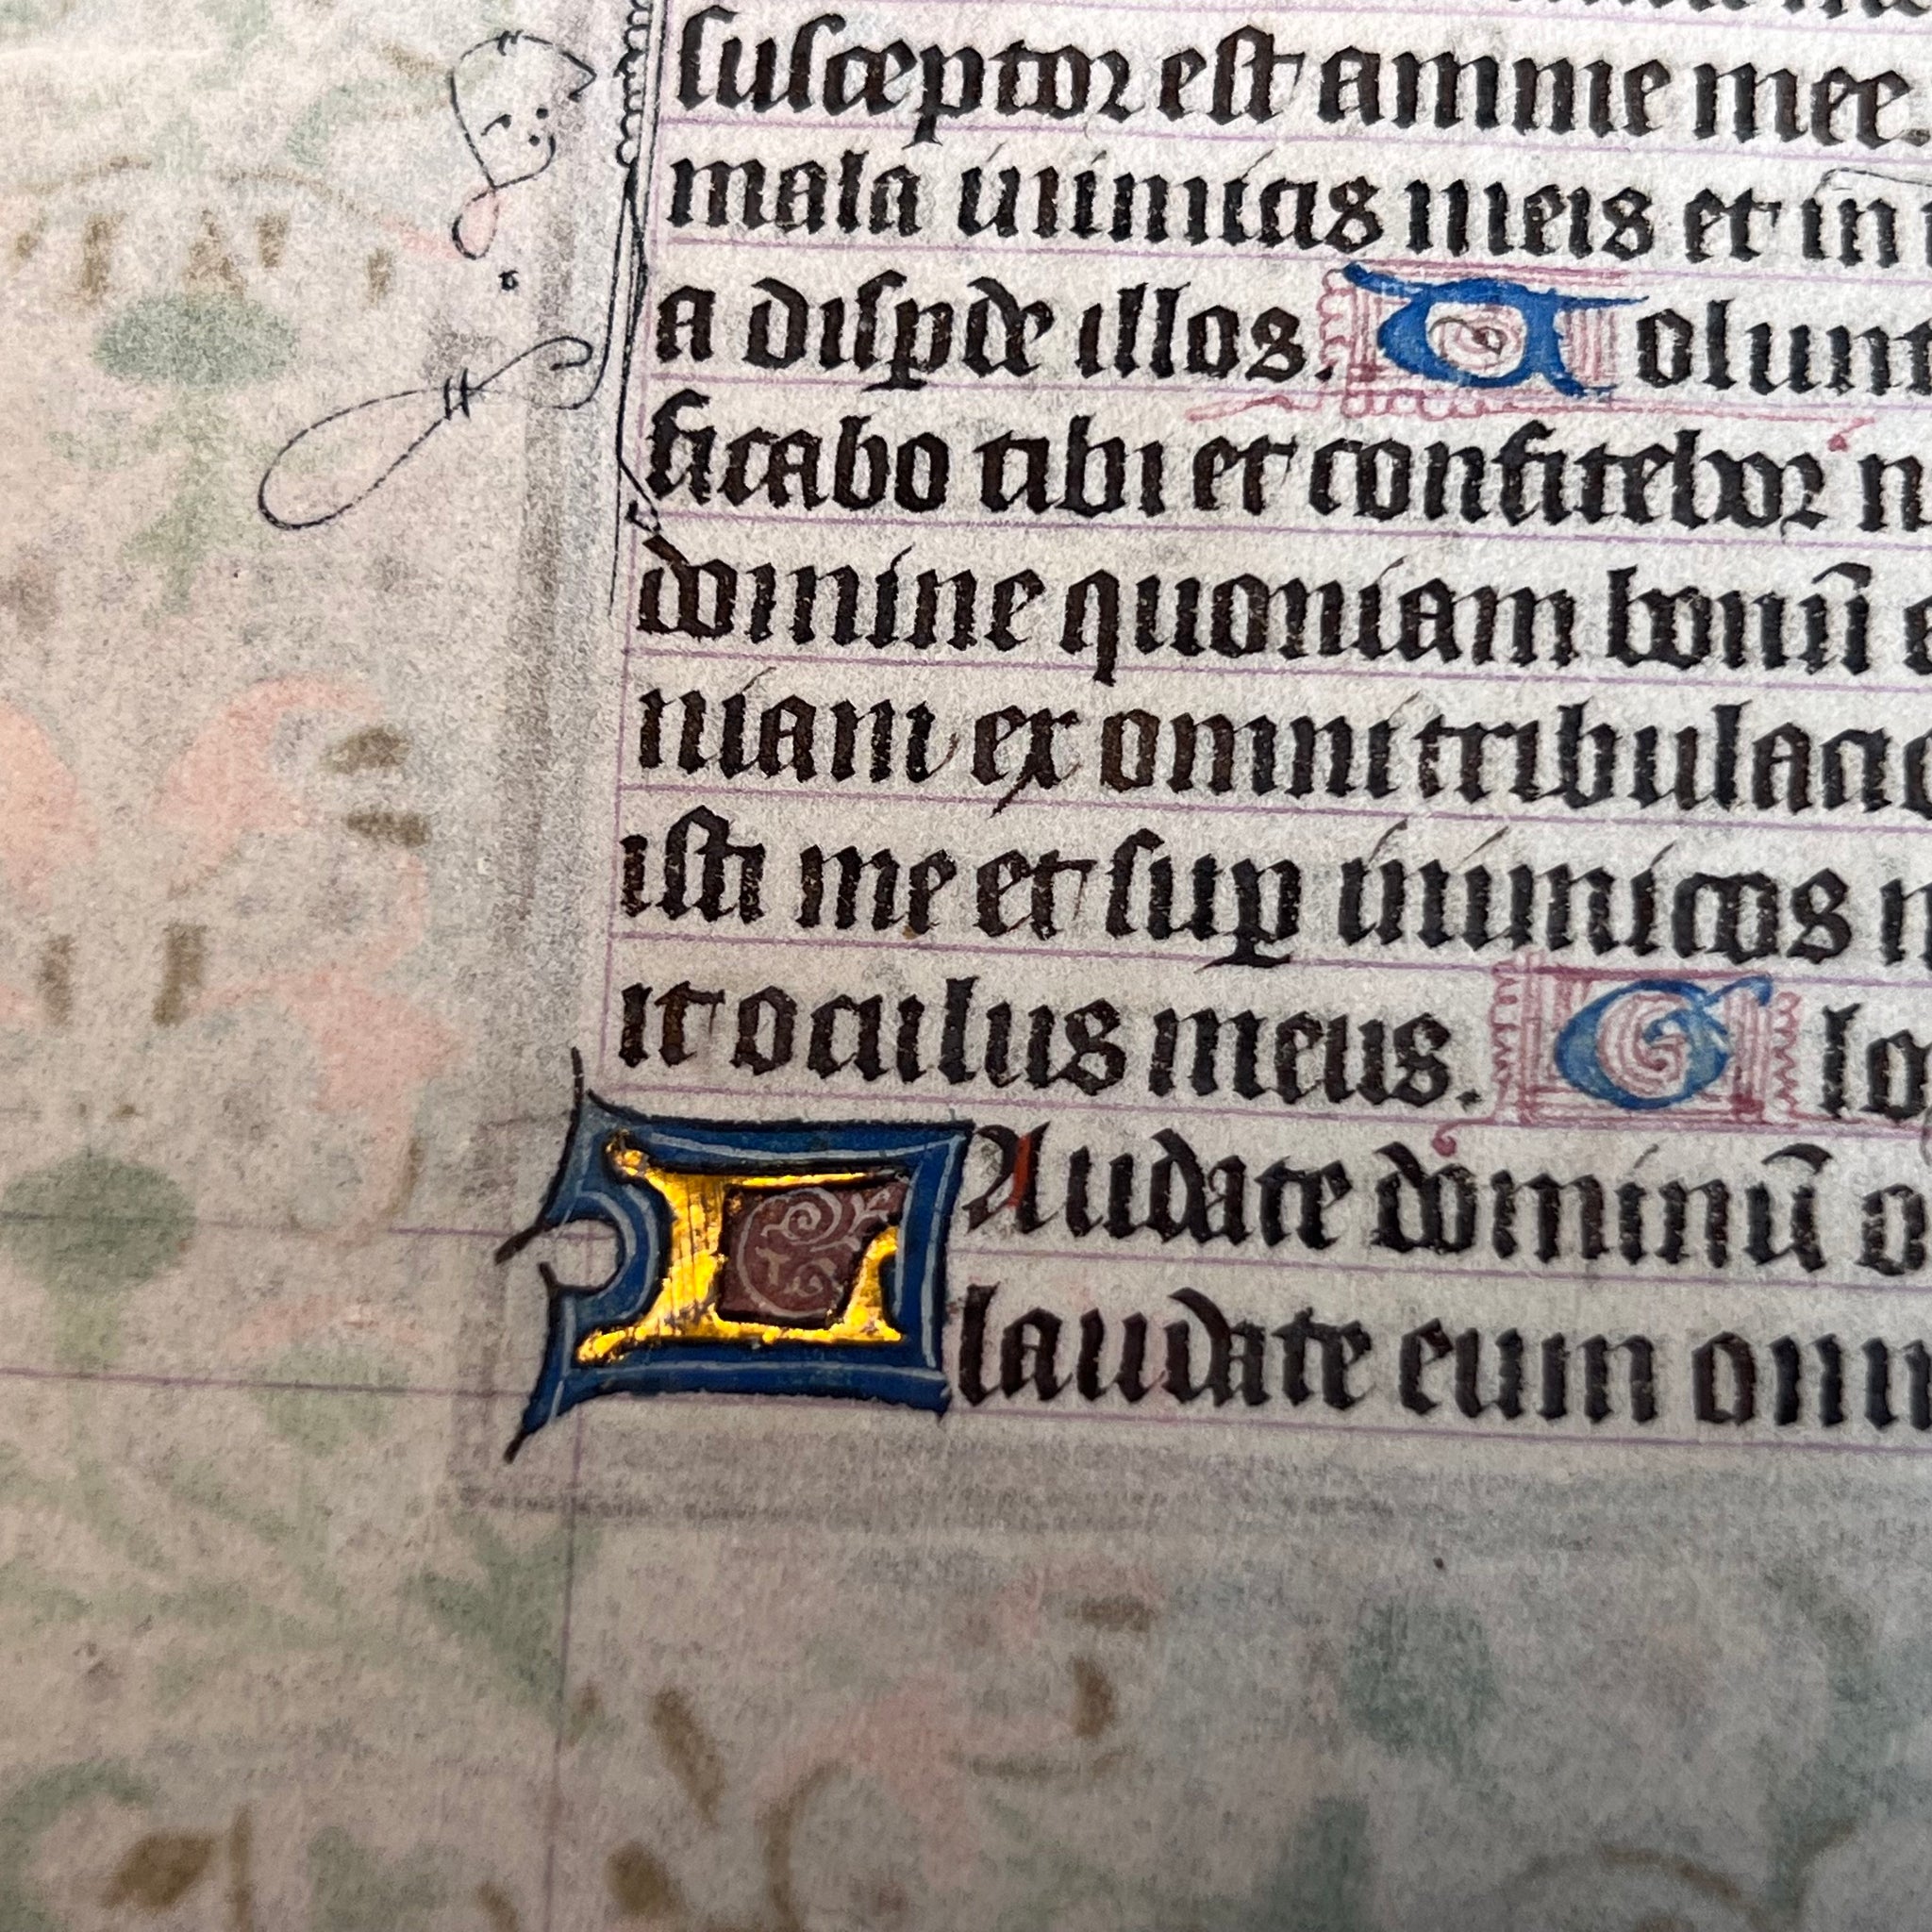 susceptor est anime mee.
mala inimicis meis et in
a disp̲de illos. Uolunt
ficabo tibi et confitebor n
domine quoniam bonū e
niam ex omni tribulacio
isti me et sup̲ inimicos m
it oculus meus. Glo
LAudate dominū o
laudate eum omn